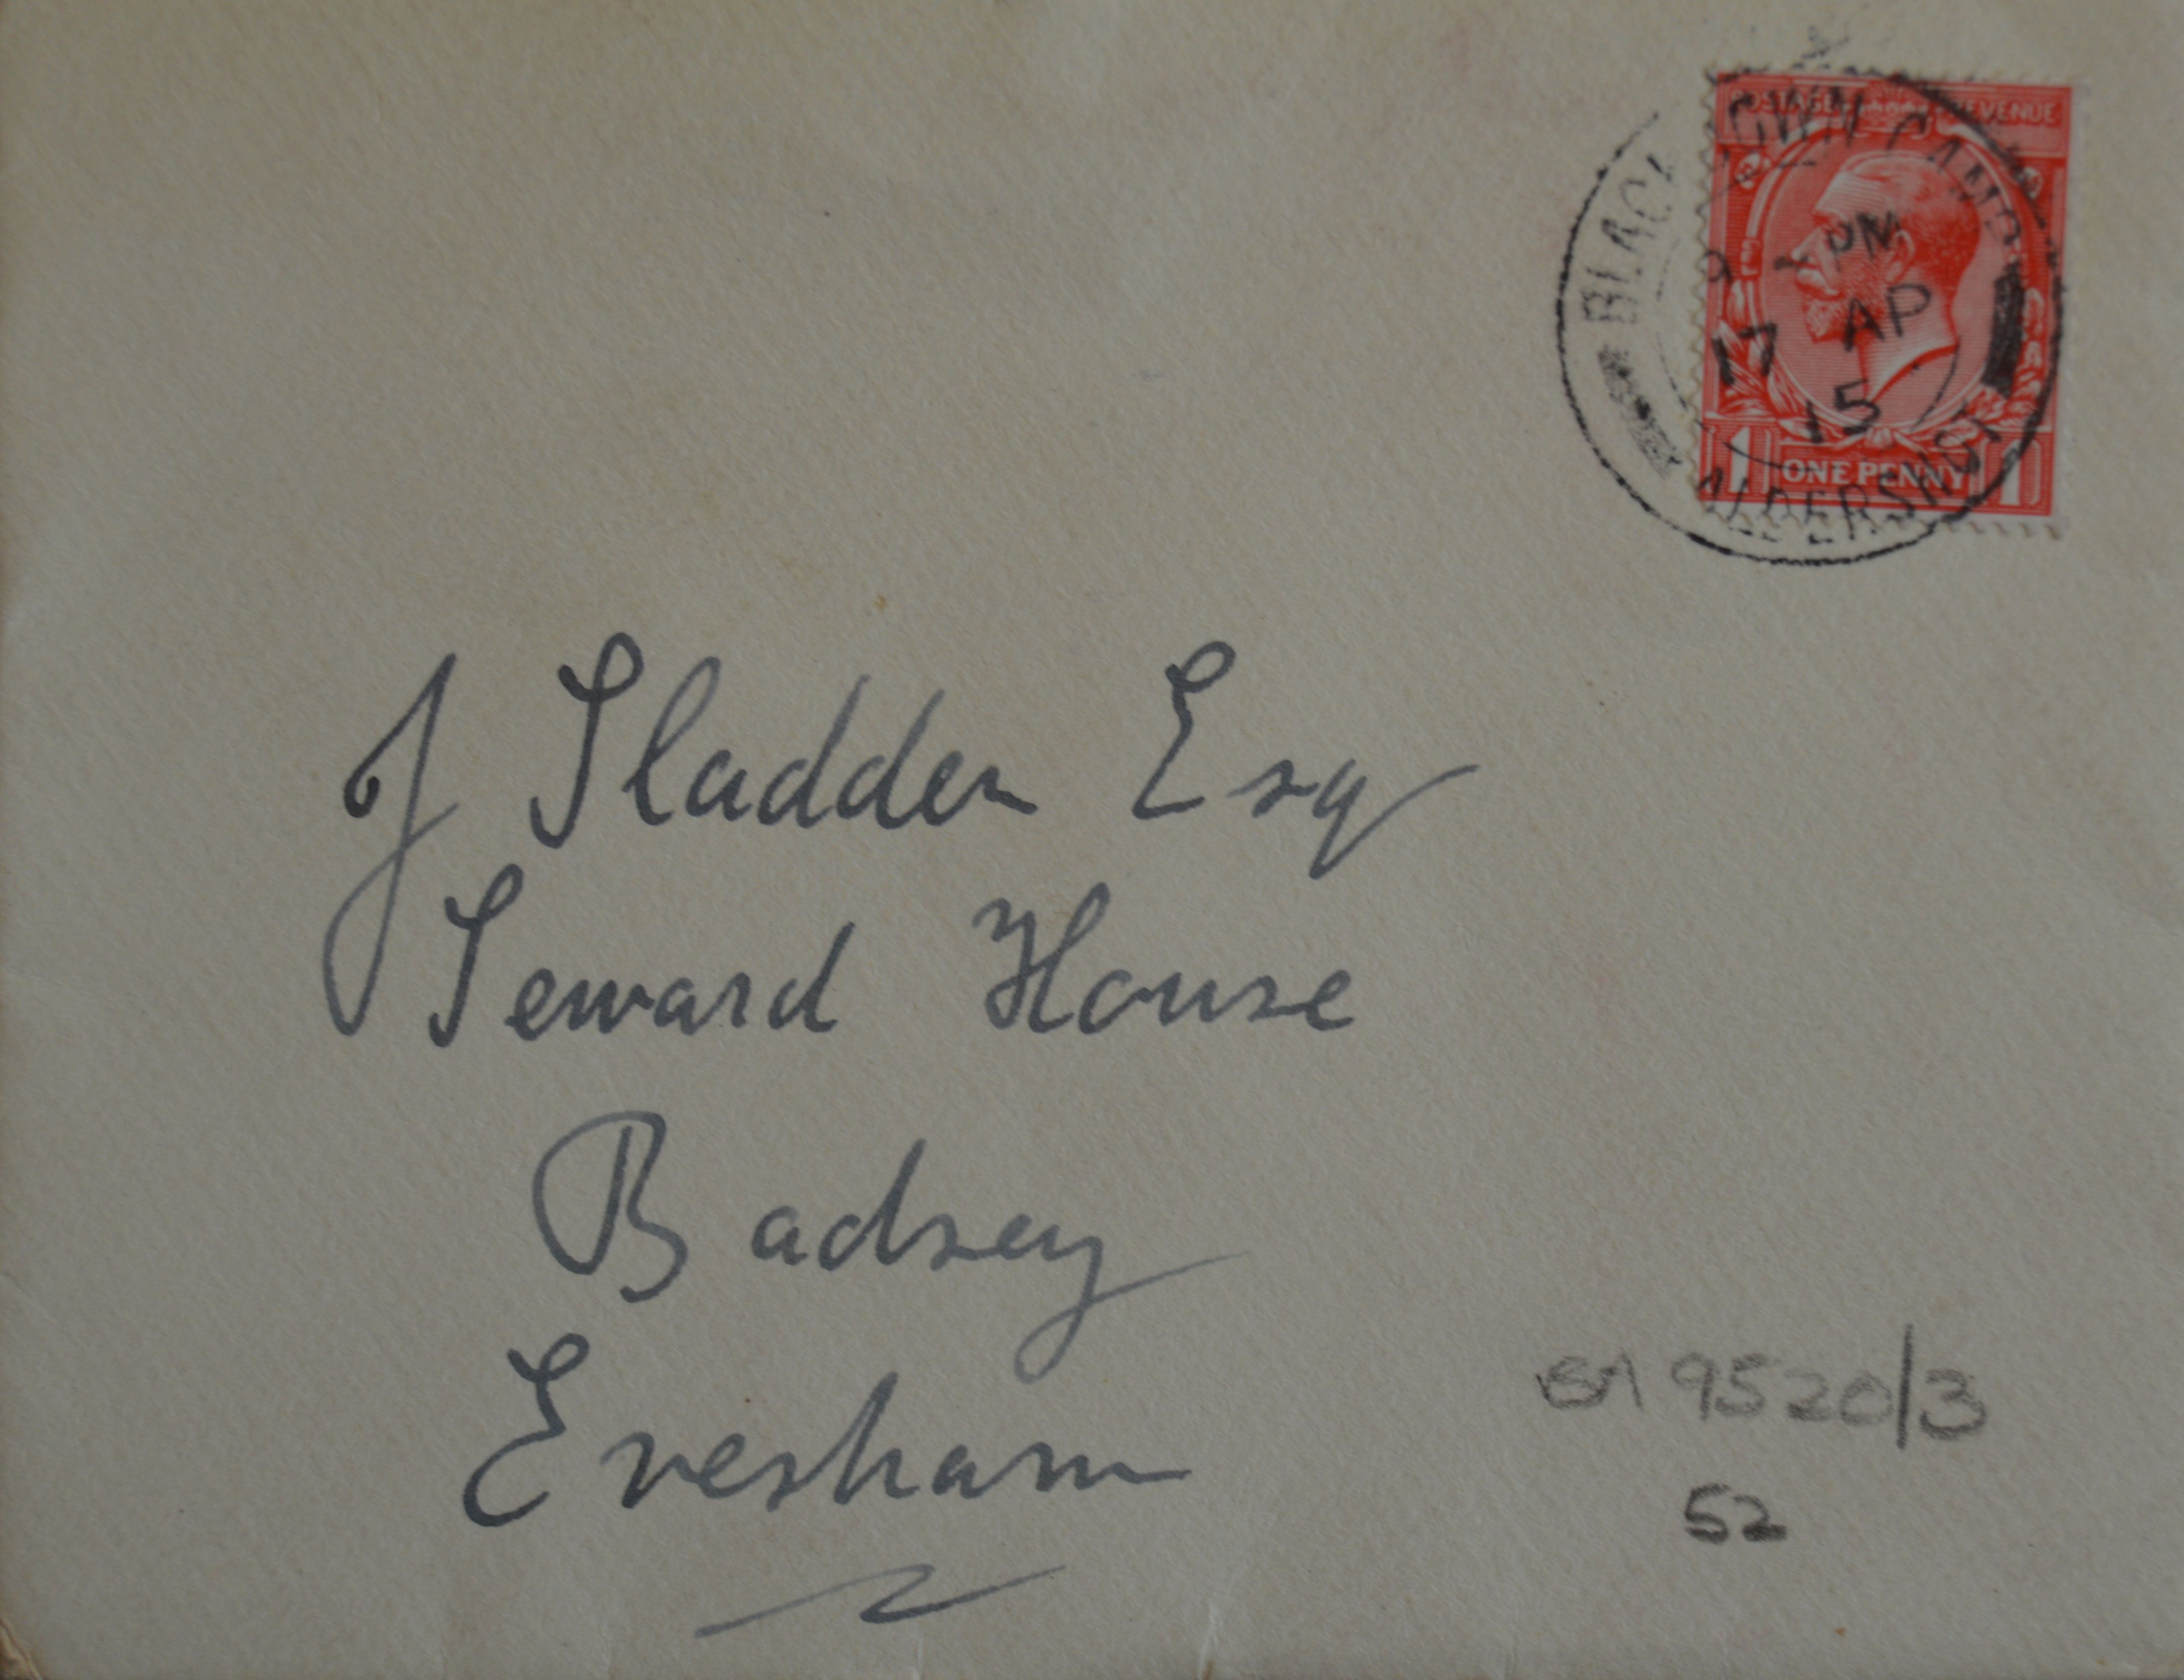 POSTAGE REVENUE
BLACKDOWN CAMP
9 PM
17 AP
15
ONE PENNY
1 1
ALDERSHOT
J Sladden Esq
Seward House
Badsey
Evesham
BA 9520/3
52